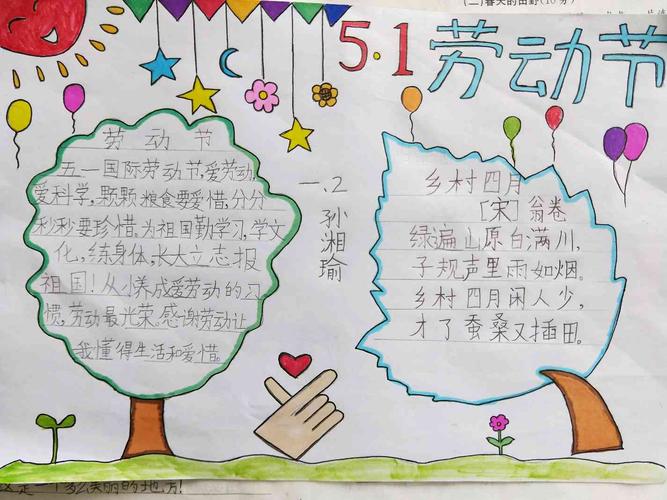 (二)春天的田野(10分)
5·1 劳动节
劳动节
五一国际劳动节,爱劳动,
爱科学,颗颗粮食要爱惜,分分
秒秒要珍惜,为祖国勤学习,学文
化,练身体,长大立志报
祖国!从小养成爱劳动的习
惯,劳动最光荣。感谢劳动让
我懂得生活和爱惜。
一.2
孙湘瑜
乡村四月
[宋]翁卷
绿遍山原白满川,
子规声里雨如烟。
乡村四月闲人少,
才了蚕桑又插田。
这是一个多么美丽的地方!